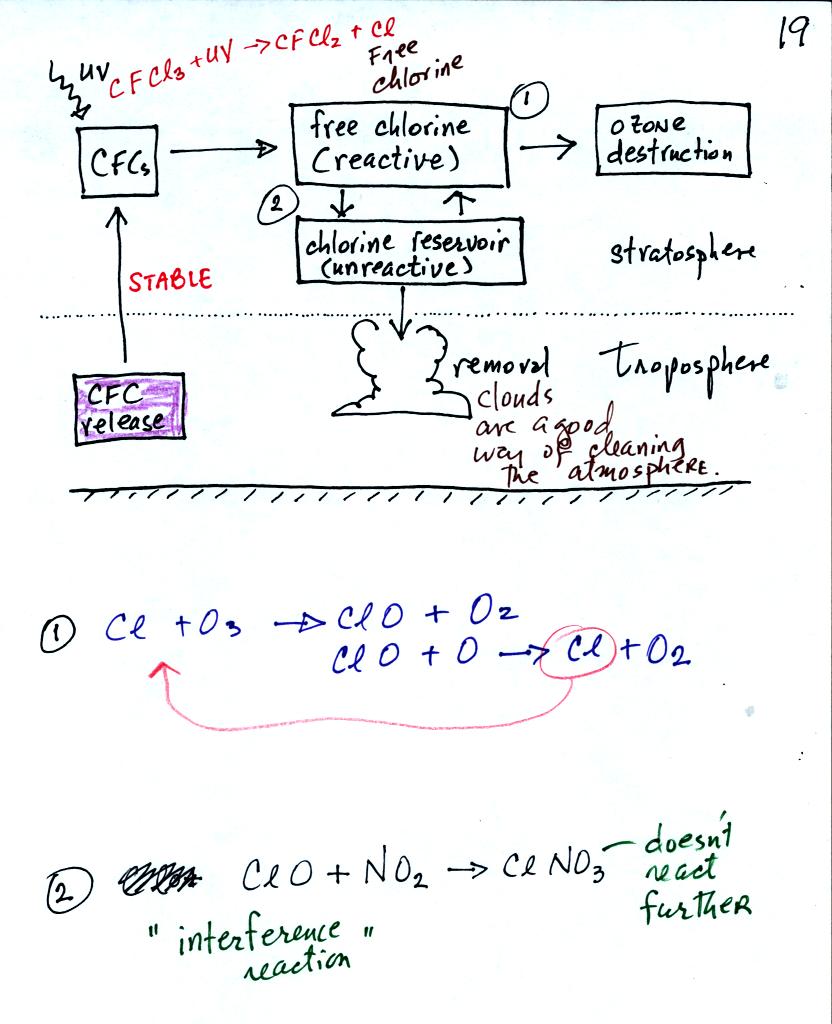 19
UV
CFCl3 + UV → CFCl2 + Cl
Free
chlorine
CFCs
free chlorine
(reactive)
1
OZONE
destruction
2
chlorine reservoir
(unreactive)
stratosphere
STABLE
CFC
release
removal
Troposphere
clouds
are a good
way of cleaning
the atmosphere.
1 Cl + O3 → ClO + O2
ClO + O → Cl + O2
2 ClO + NO2 → ClNO3
doesn't
react
further
" interference "
reaction